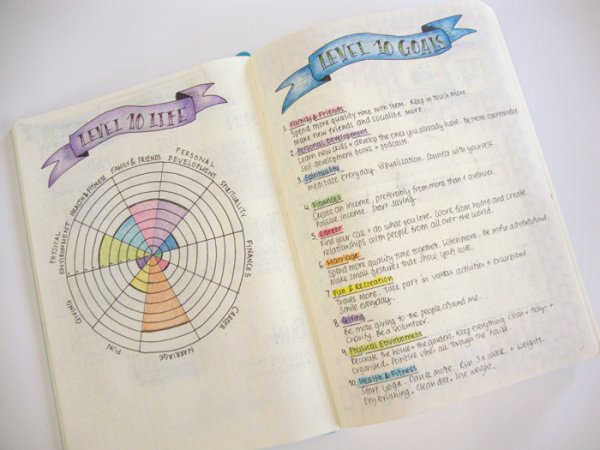 LEVEL 10 LIFE
FAMILY & FRIENDS
PERSONAL DEVELOPMENT
SPIRITUALITY
FINANCES
CAREER
MARRIAGE
FUN
GIVING
PHYSICAL ENVIRONMENT
HEALTH & FITNESS
LEVEL 10 GOALS
1. Family & Friends
Spend more quality time with them. Keep in touch more.
Make new friends and socialize more.
2. Personal Development
Learn new skills + develop the ones you already have. Be more openminded
Self development books + podcasts.
3. Spirituality
Meditate everyday. Visualisation. Connect with yourself.
4. Finances
Create an income, preferably from more than 1 avenue.
Passive income. Start saving.
5. Career
Find your call + do what you love. Work from home and create
relationships with people from all over the world.
6. Marriage
Spend more quality time together. Listen more. Be more adventurous.
Make small gestures that show + gift love.
7. Fun & Recreation
Travel more. Take part in various activities + excursions.
Smile everyday.
8. Giving
Be more giving to the people around me.
Charity. Be a Volunteer.
9. Physical Environment
Decorate the house + the garden. Keep everything clean + tidy +
Organised. Positive vibes all through the house.
10. Health & Fitness
Start yoga. Dance more. Run 3x week + weights.
Dry brushing, clean diet, lose weight.